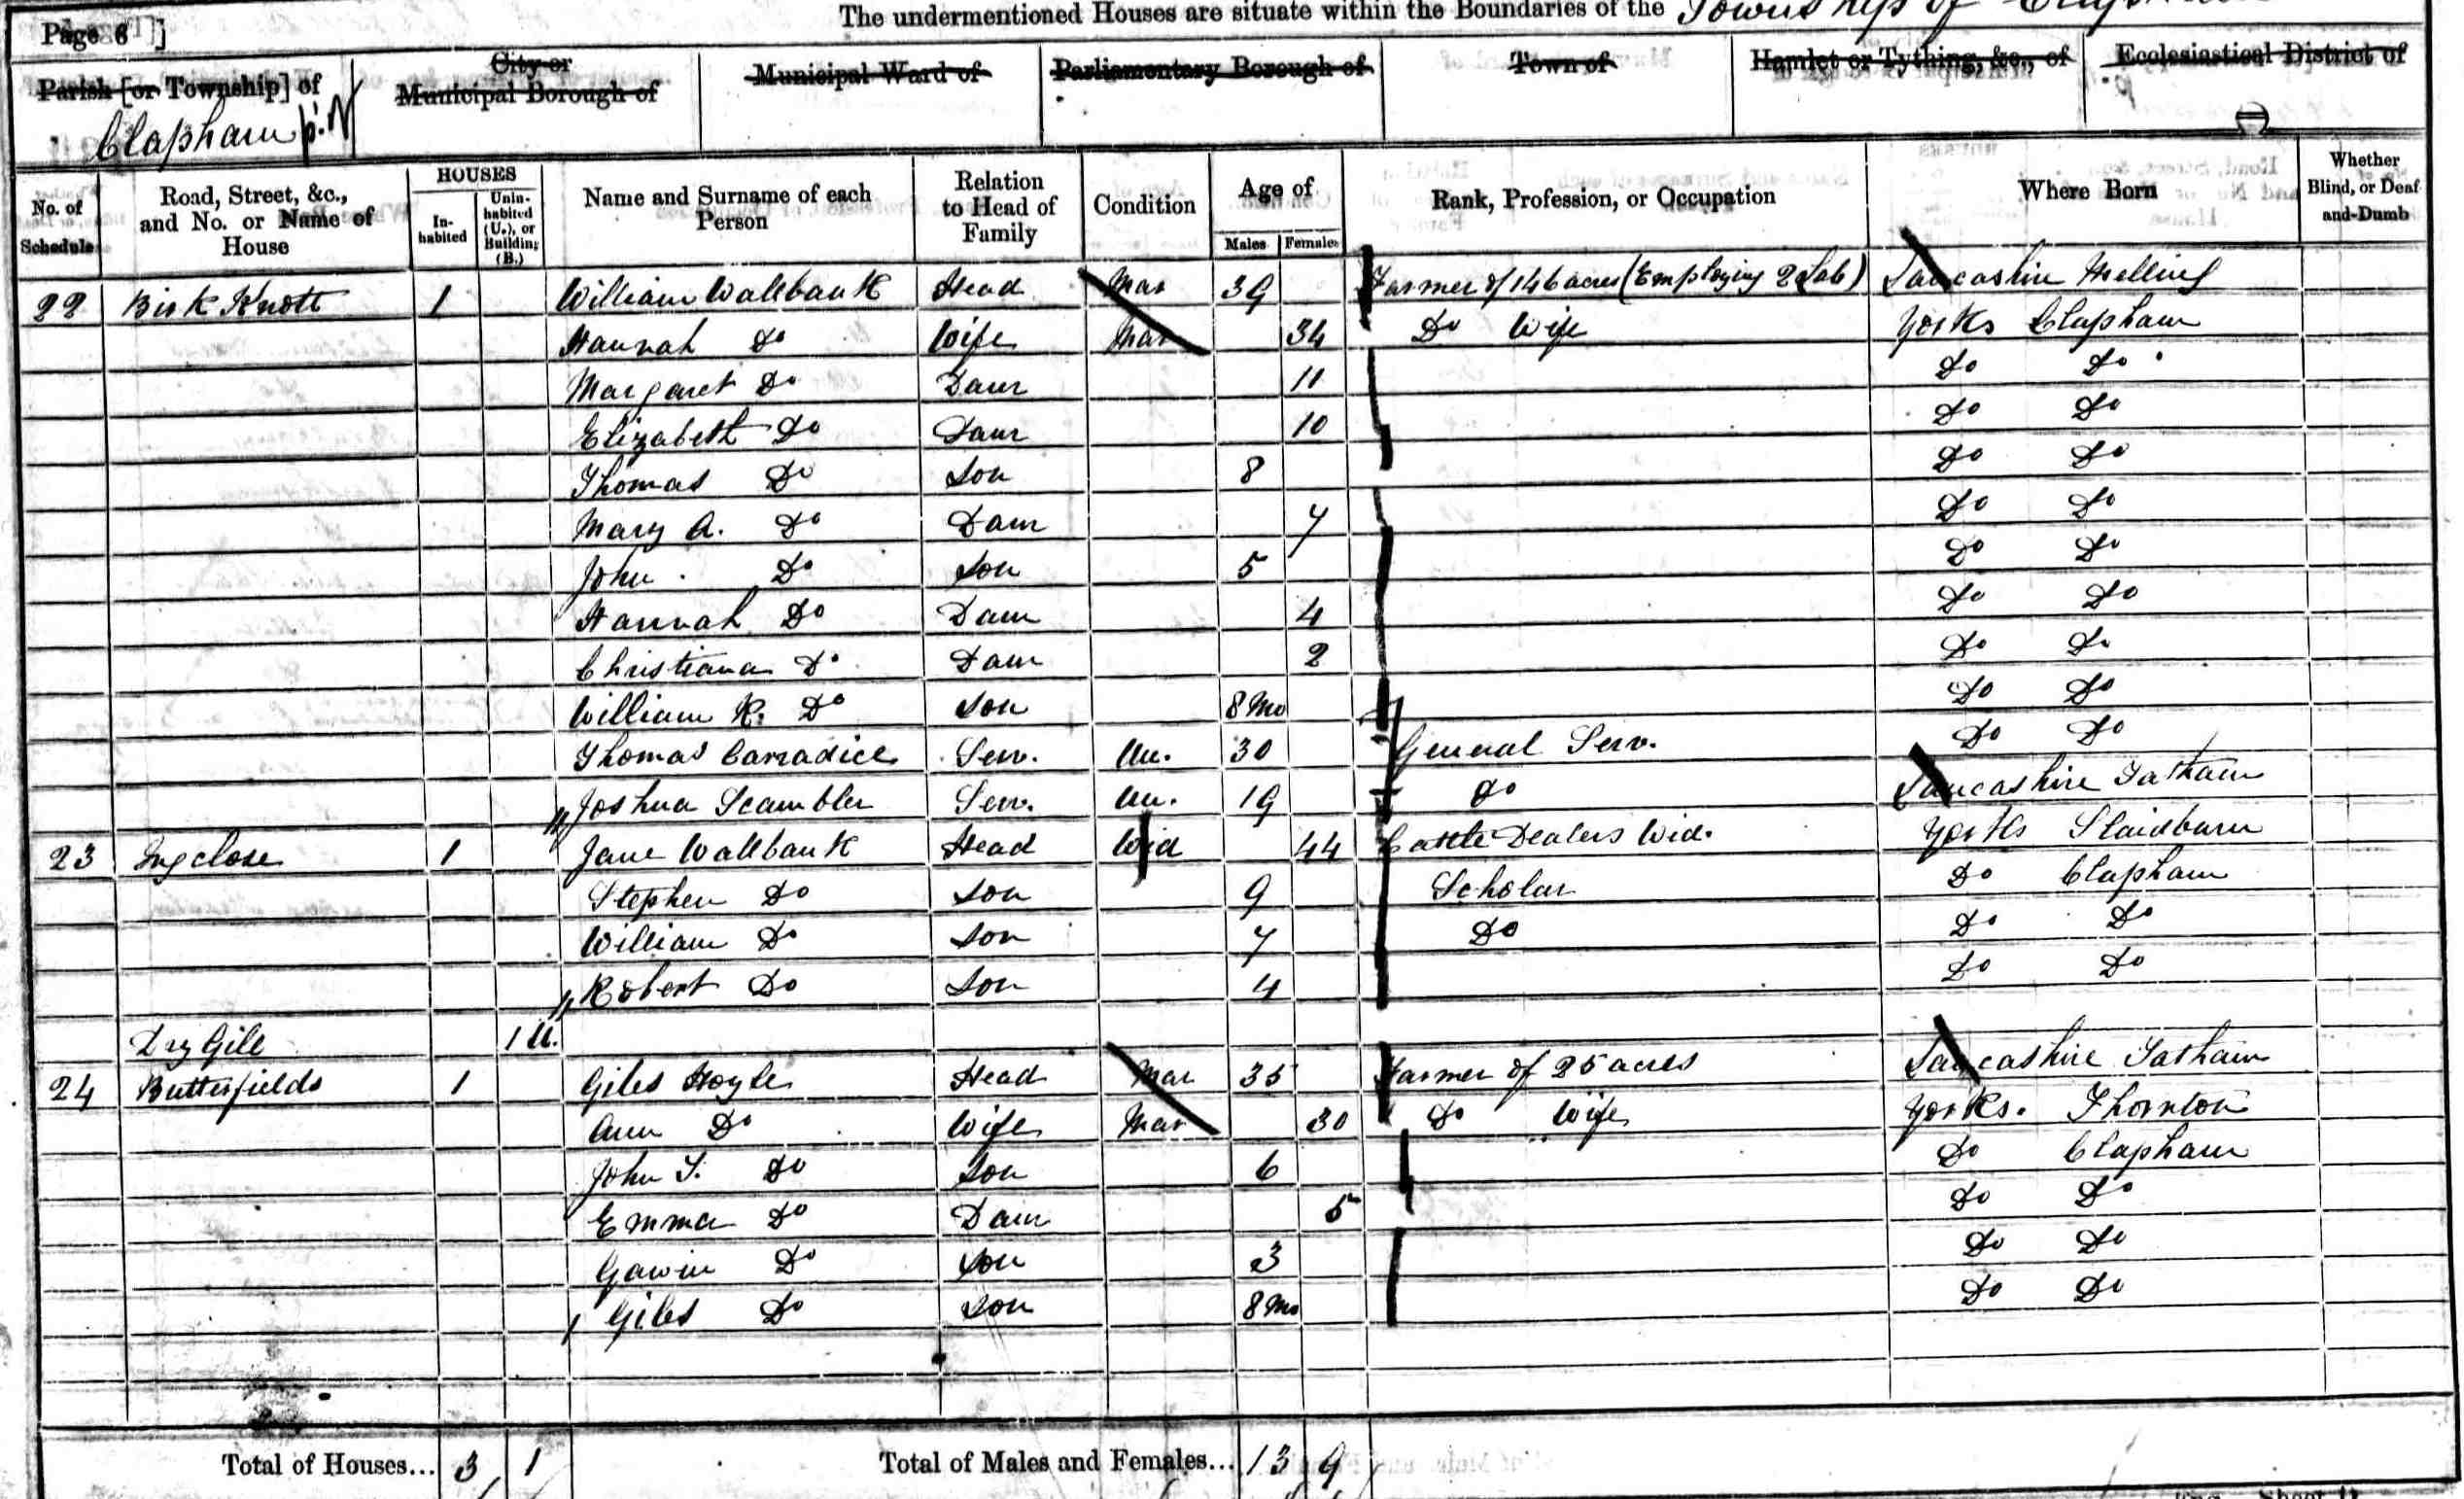 The undermentioned Houses are situate within the Boundaries of the Township of
Page 6 ]
Parish [or Township] of Clapham
City or Municipal Borough of
Municipal Ward of
Parliamentary Borough of
Town of
Hamlet or Tything, &c., of
Ecclesiastical District of
No. of Schedule
Road, Street, &c., and No. or Name of House
HOUSES
In-habited
Unin-habited (U.), or Building (B.)
Name and Surname of each Person
Relation to Head of Family
Condition
Age of
Males
Females
Rank, Profession, or Occupation
Where Born
Whether Blind, or Deaf-and-Dumb
22 Birk Knott 1 William Wallbank Head Mar 39 Farmer of 146 acres (Employing 2 Lab) Lancashire Melling
Hannah Do Wife Mar 34 Do Wife Yorks Clapham
Margaret Do Daur 11 Do Do
Elizabeth Do Daur 10 Do Do
Thomas Do Son 8 Do Do
Mary A. Do Daur 7 Do Do
John Do Son 5 Do Do
Hannah Do Daur 4 Do Do
Christiana Do Daur 2 Do Do
William R. Do Son 8 Mo Do Do
Thomas Carradice Serv. Un. 30 General Serv. Do Do
Joshua Scambler Serv. Un. 19 Do Lancashire Tatham
23 Ingclose 1 Jane Wallbank Head Wid 44 Cattle Dealers Wid. Yorks Slaidburn
Stephen Do Son 9 Scholar Do Clapham
William Do Son 7 Do Do Do
Robert Do Son 4 Do Do
Dry Gill 1 U.
24 Butterfields 1 Giles Hoyle Head Mar 35 Farmer of 25 acres Lancashire Tatham
Ann Do Wife Mar 30 Do Wife Yorks. Thornton
John T. Do Son 6 Do Clapham
Emma Do Daur 5 Do Do
Gawin Do Son 3 Do Do
Giles Do Son 8 Mo Do Do
Total of Houses... 3 1 Total of Males and Females... 13 9